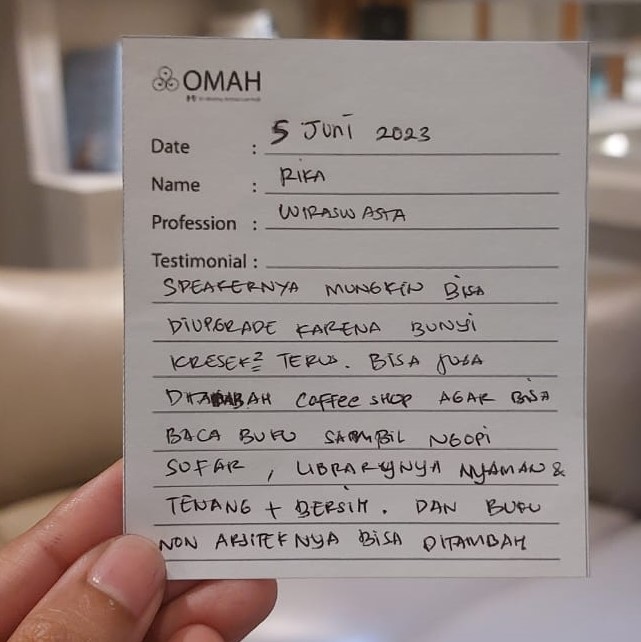 OMAH
Date : 5 JUNI 2023
Name : RIKA
Profession : WIRASWASTA
Testimonial :
SPEAKERNYA MUNGKIN BISA
DIUPGRADE KARENA BUNYI
KRESEK² TERUS. BISA JUGA
DITAMBAH COFFEE SHOP AGAR BISA
BACA BUKU SAMBIL NGOPI
SOFAR, LIBRARYNYA NYAMAN &
TENANG + BERSIH. DAN BUKU
NON ARSITEKNYA BISA DITAMBAH